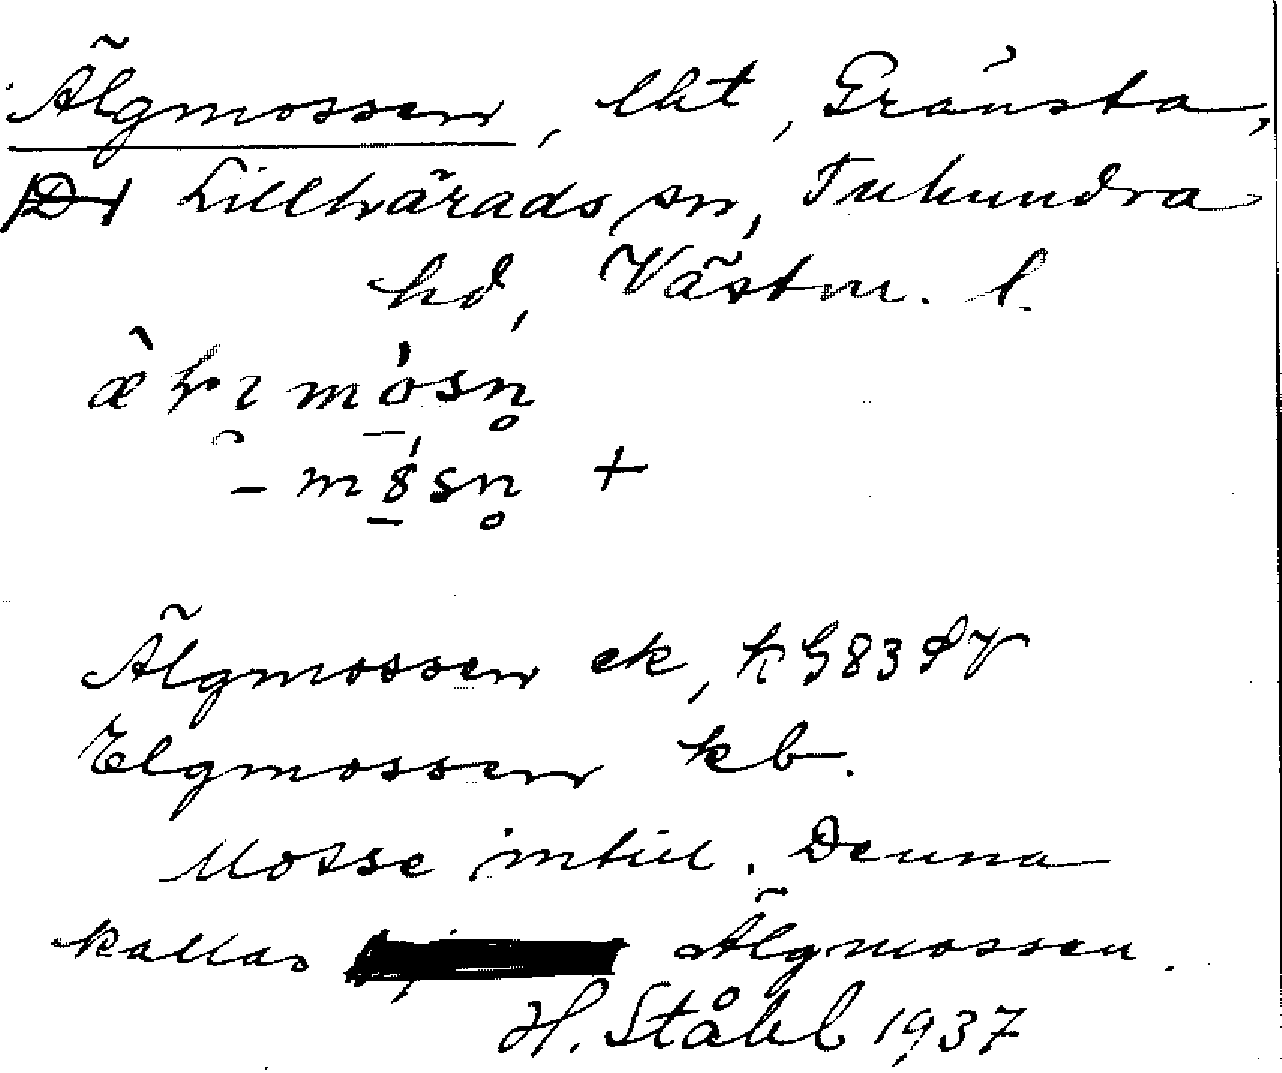 Älgmossen, lht, Gränsta,
Lillhärads sn, Tuhundra
hd, Västm. l.
Älgmossen ek, kG83SV
Elgmossen kb.
Mosse intill. Denna
kallas Älgmossen.
H. Ståhl 1937